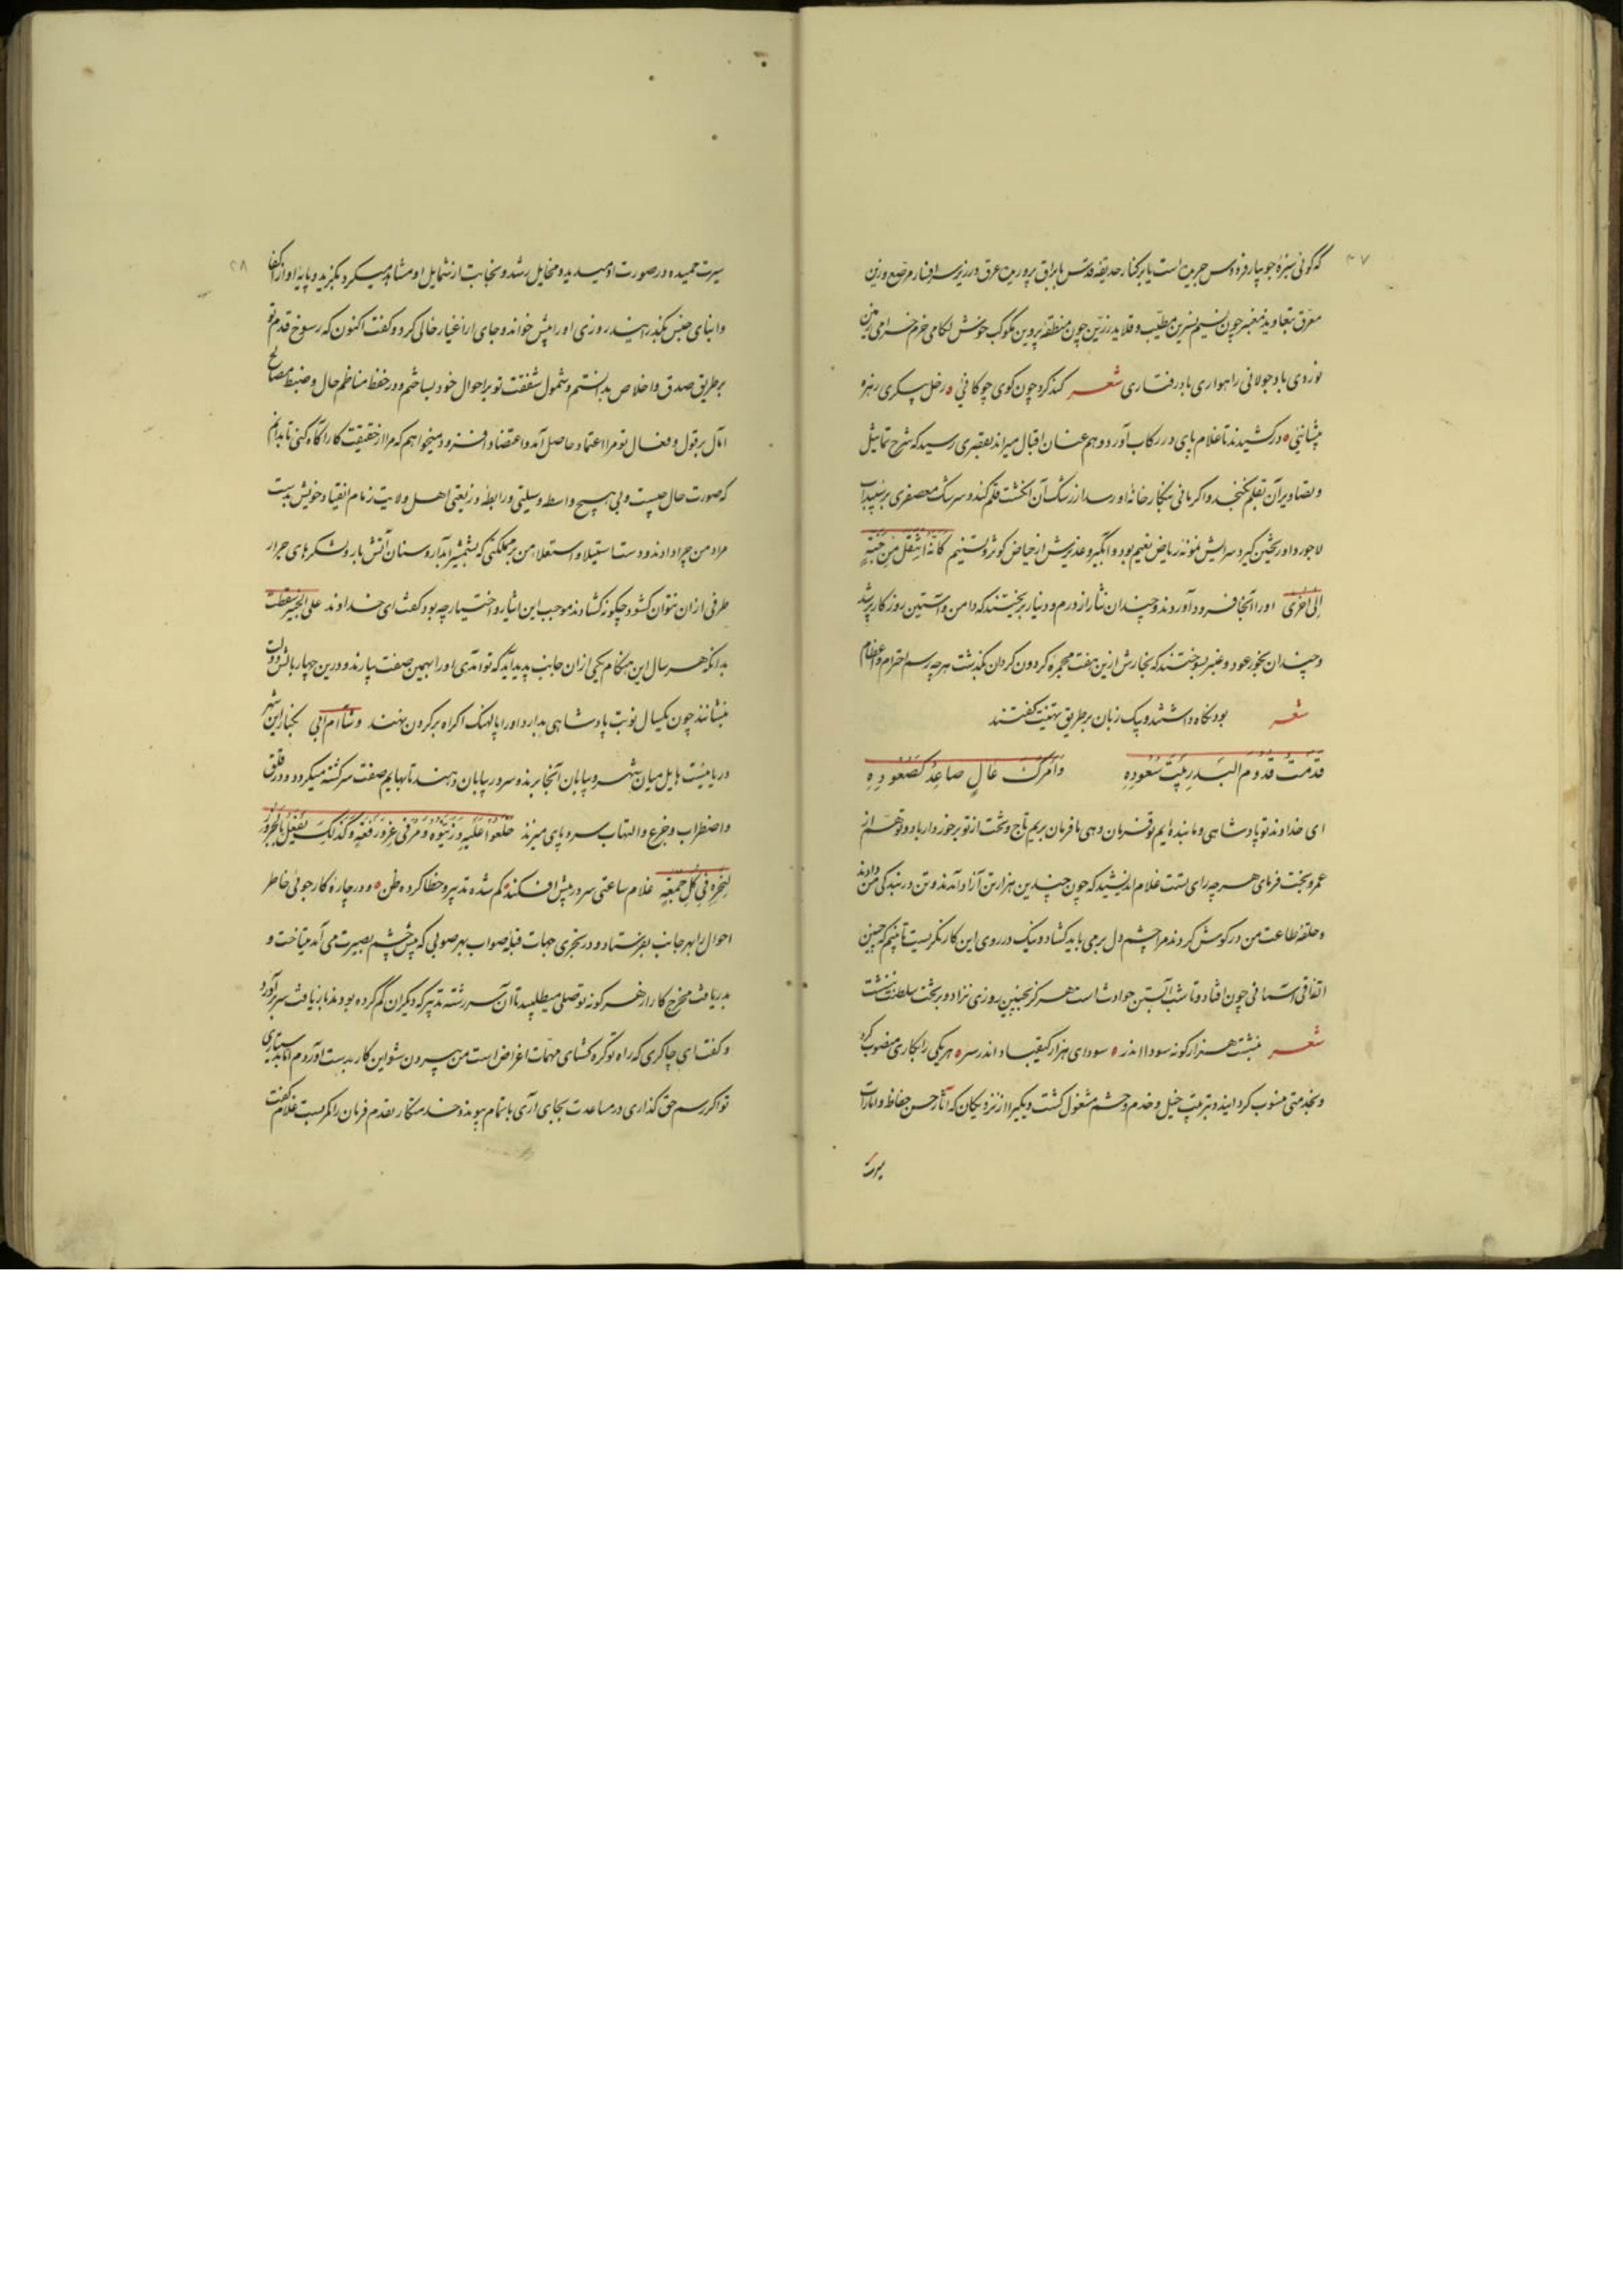 که گوئی سبزهٔ جویبار فردوس چریده است یا بر کنار حدیقهٔ قدس با براق پروریده عرق در زیر سرافسار مرصع و زین
معرق بتعاوید معنبر چون نسیم نسرین مطیب و قلاید زرین چون منطقهٔ پروین مکوکب خوش لکامی خرم خرامی زمین
نوردی باد جولانی راهواری بادرفتاری شعر کندکرد چون کوی چوکانی ٥ زحل پیکری زهره
پیشانیی ٥ درکشیدند تا غلام پای در رکاب آورد و هم عنان اقبال میراند بقصری رسید که شرح تماثیل
و تصاویر آن بقلم نکنجد و اکر مانی بنکارخانهٔ او رسد از رشک آن انکشت قلم کند و سرشک معصفری بر سپیداب
لاجورد آوریختن کیرد سرایش نمونهٔ ریاض نعیم بود و آبگیر و غدیرش از حیاض کوثر و تسنیم کانه انتقل من جنة
الی اخری او را آنجا فرود آوردند و چندان نثار از درم و دینار بریختند که دامن و آستین روزکار پر شد
و چندان بخور عود و عنبر بسوختند که بخارش ازین هفت مجمرهٔ کردون کردان بکذشت هرچه رسم احترام و اعظام
بود نکاه داشتند و یک زبان بر طریق تهنیت کفتند شعر
قدمت قدوم البدر بیت سعوده وامرک عال صاعد کصعوده
ای خداوند تو پادشاهی و ما بنده‌ایم تو فرمان دهی ما فرمان بریم تاج و تخت از تو برخوردار باد و تو هم از
عمر و بخت فرمای هرچه رای تست غلام اندیشید که چون چندین هزار تن آزاد آمدند و تن در بندکی من دادند
و حلقهٔ طاعت من در کوش کردند مرا چشم دل بر می باید کشاد و نیک در روی این کار نکریست تا بینم که چنین
اتفاقی آسمانی چون افتاد و تا شب آبستن حوادث است هرکز بچنین روزی نزاد و بر تخت سلطنت بنشست
شعر بنشست هزار کونه سودا اندر ٥ سودای هزار کیقباد اندر سر ٥ هر یکی را بکاری منصوب کرد
و بخدمتی منسوب کردانید و بترتیب خیل و خدم و حشم مشغول کشت و یکی را از نزدیکان که آثار حسن حفاظ و امارات
سیرت
۲۷
سیرت حمیده در صورت او میدید و مخایل رشد و نجابت از شمایل او مشاهده میکرد بکزید و پایهٔ او از اکفا
و ابنای جنس بکذرانید روزی او را پیش خواند و جای از اغیار خالی کرد و کفت اکنون که رسوخ قدم تو
بر طریق صدق و اخلاص بدانستم و شمول شفقت تو بر احوال خود بشناختم و در حفظ مناظم حال و ضبط مصالح
آمال بر قول و فعال تو مرا اعتماد حاصل آمد و اعتضاد افزود میخواهم که مرا از حقیقت کار آکاه کنی تا بدانم
که صورت حال چیست و بی هیچ واسطه و وسیلتی و رابطه و ذریعتی اهل ولایت زمام انقیاد خویش بدست
مراد من چرا دادند و دست استیلا و استعلاء من بر مملکتی که بشمشیر آبدار و سنان آتش بار و لشکرهای جرار
طرفی از آن نتوان کشود چکونه کشادند موجب این ایثار و اختیار چه بود کفت ای خداوند علی الخبیر سقطت
بدانکه هر سال این هنکام یکی از آن جانب پدید آید که تو آمدی او را بهمین صفت بیارند و درین چهار بالش دولت
بنشانند چون یکسال نوبت پادشاهی بدارد او را پالهنک اکراه بر کردن نهند و شاء ام ابی بکنار این شهر
دریائیست هایل میان شهر و بیابان آنجا برند و سر در بیابان دهند تا بهایم صفت سرکشته میکردد و در قلق
و اضطراب و جزع و التهاب سر و پای میزند خلعوا علیه وزینوه ومر فی عز ورفعة وکذلک یفعل بالجزور
لنحره فی کل جمعة غلام ساعتی سر در پیش افکند کم شده تدبیر و خطا کرده ظن ٥ و در چارهٔ کارجوئی خاطر
احوال را بهر جانب بفرستاد و در تحری جهات قبلهٔ صواب بهر صوبی که پیش چشم بصیرت می آمد میتاخت و
بدریافت مخرج کار از هر کونه توصلی میطلبید تا آن سر رشتهٔ تدبیر که دیکران کم کرده بودند بازیافت سر برآورد
و کفت ای چاکری که راه تو کره کشای مهمات اغراض است من بیرون شو این کار بدست آوردم اما بدستیاری
تو اکر رسم حق کذاری در مساعدت بجای آری باتمام پیوندد خدمتکار بقدم فرمان را کمر بست غلام کفت
۲۸